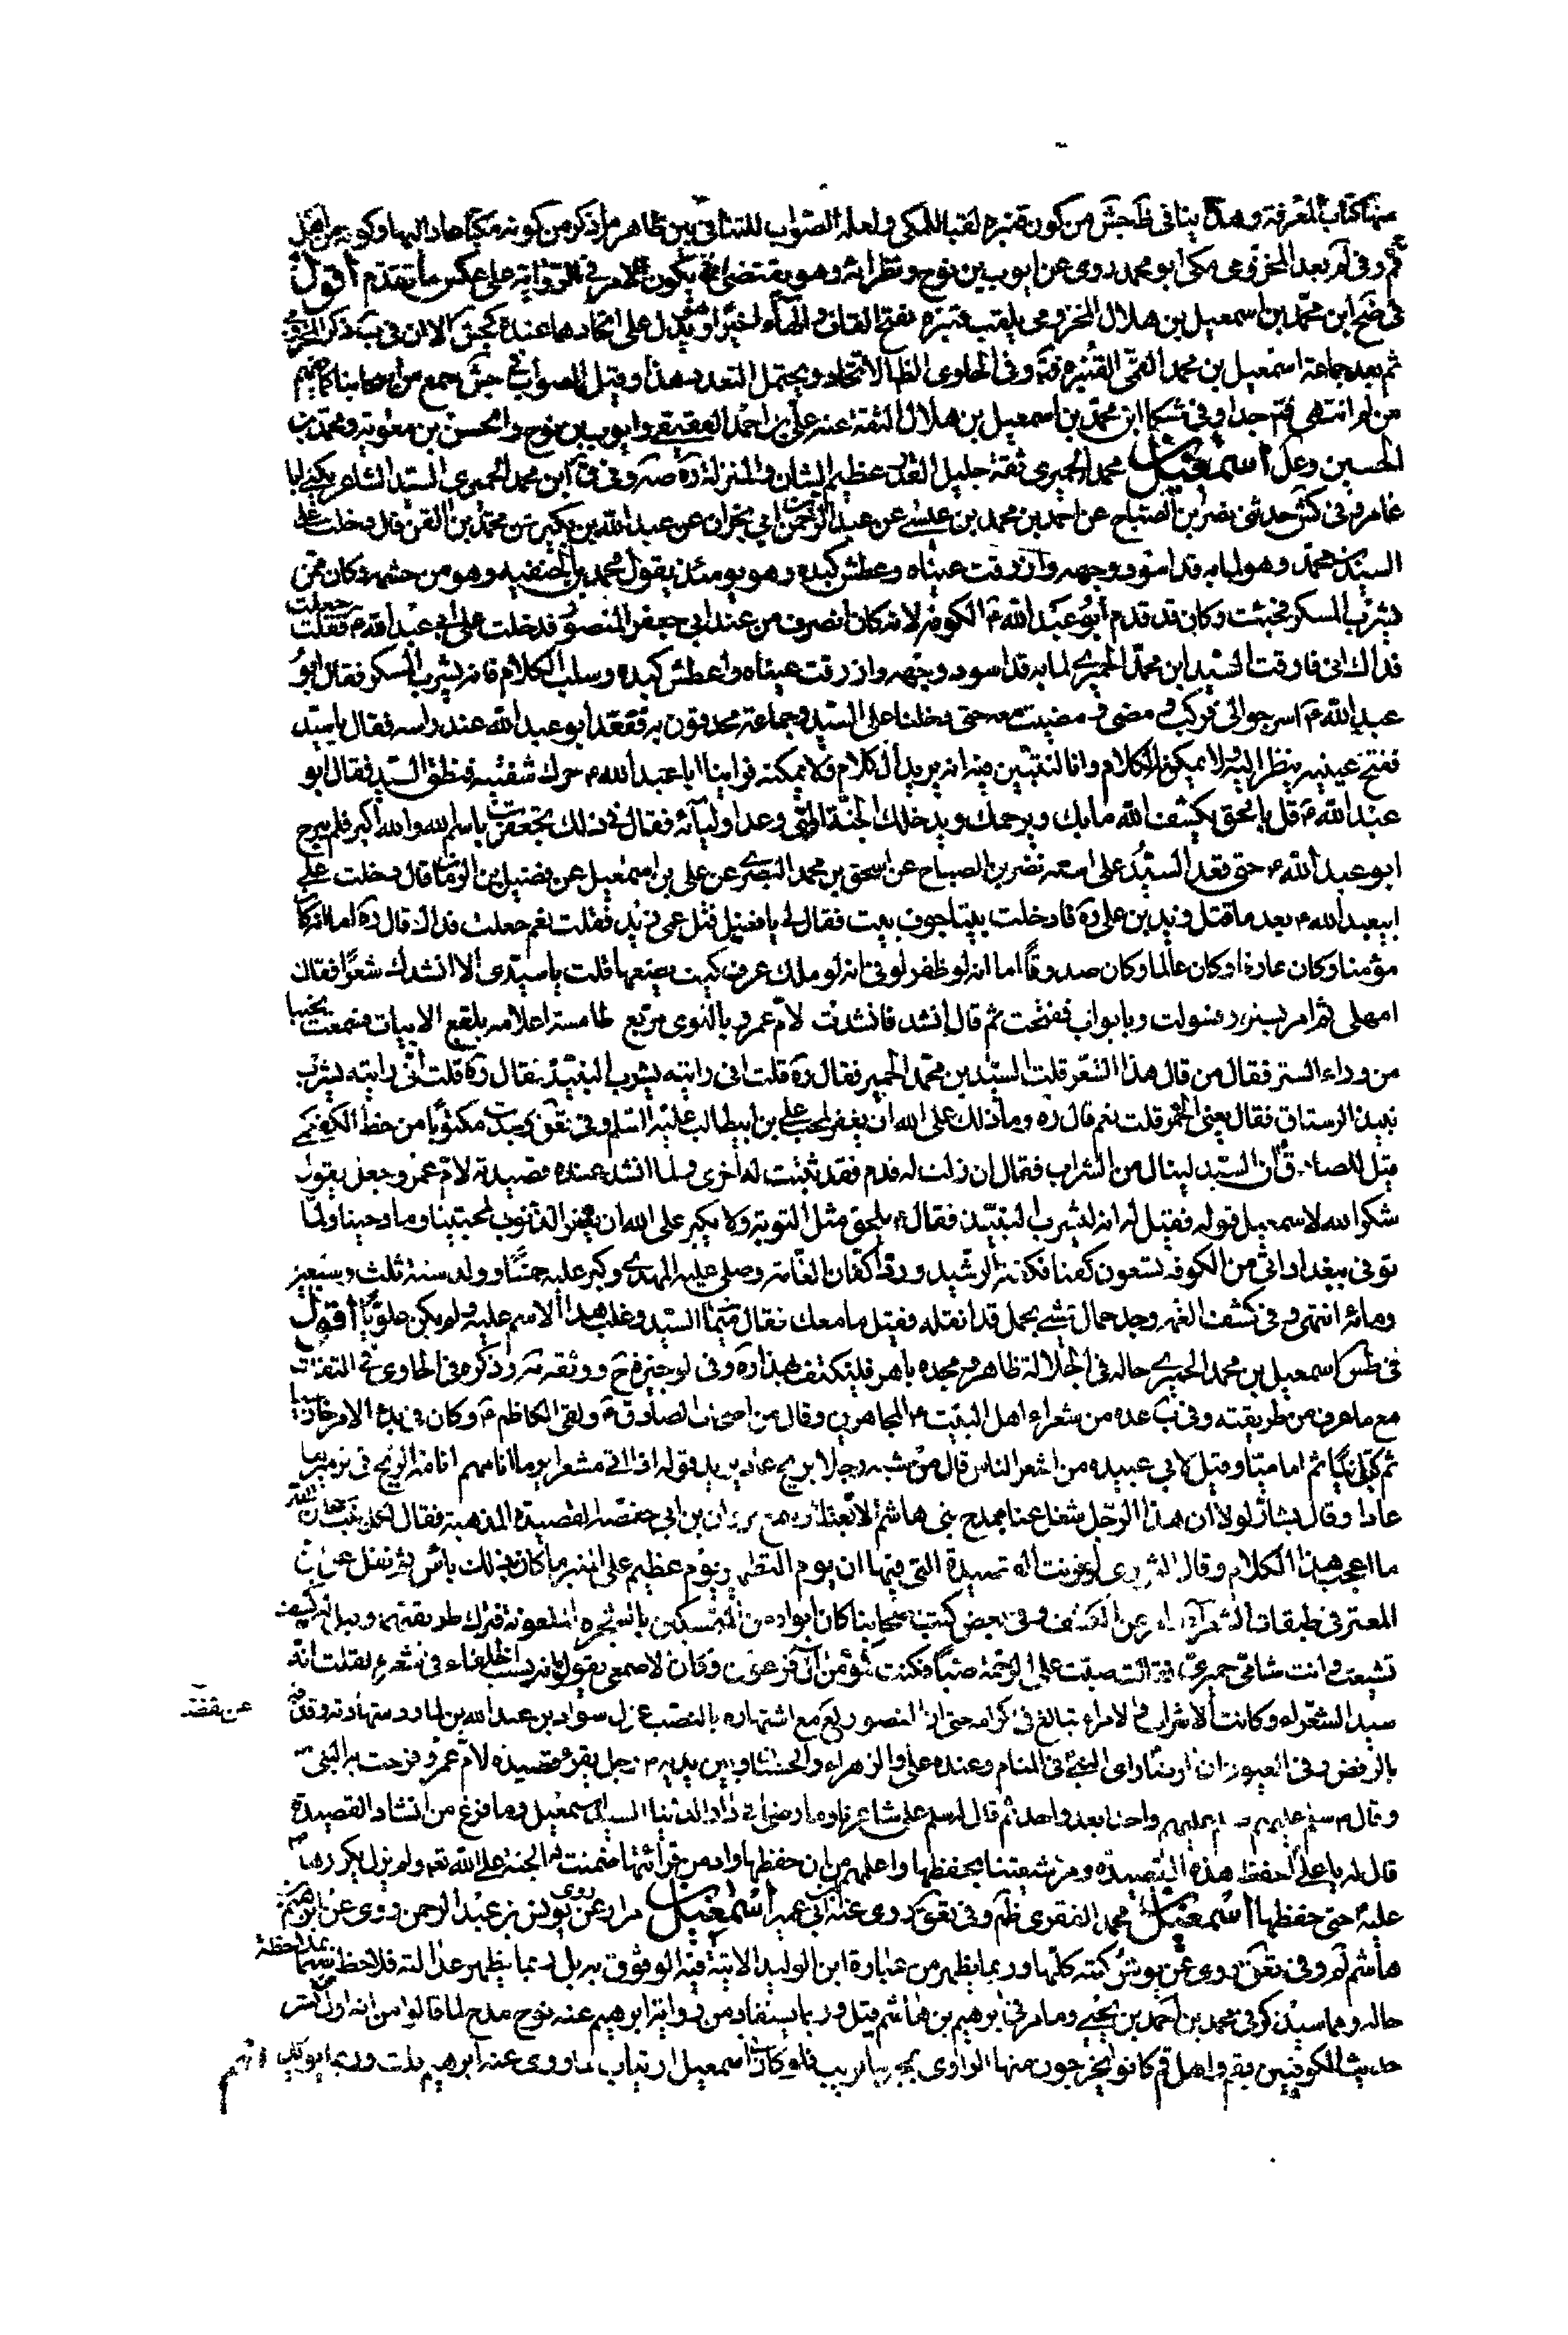 منها كتاب المعرفة وهذا ينافى ظ جش من كون قنبرة لقبا للمكى ولعله الصواب للتنافى بين ظاهر ما ذكر من كونه مكيا صار اليها وكونه من اهل
قم وفى لم بعد المخزومى مكى ابو محمد روى عن ايوب بن نوح ونظرائه وهو يقتضى ان يكون الامر فى الرواية على عكس ما تقدم أقول
فى ضح ابن محمد بن اسمعيل بن هلال المخزومى يلقب قنبرة بفتح القاف والهاء اخيرا و يدل على اتحادهما عنده كجش الا ان فى ب ذكر المخزومى
ثم بعده جماعة اسمعيل بن محمد القمى القنبرة وفى الحاوى الظ الاتحاد ويحتمل التعدد هذا وقيل الصواب فى جش جمع من اصحابنا كما فهم
من لم انتهى فتم جدا وفى مشكا ابن محمد بن اسمعيل بن هلال الثقة عنه على بن احمد العقيقى وايوب بن نوح والحسن بن معوية ومحمد بن
الحسين وعلى اسمعيل محمد الحميرى ثقة جليل القدر عظيم الشان والمنزلة ره صه وفى ق ابن محمد الحميرى السيد الشاعر يكنى ابا
عامر وفى كش حدثنى نصر بن الصباح عن احمد بن محمد بن عيسى عن عبد الرحمن ابى نجران عن عبد الله بن بكير عن محمد بن النعمن قال دخلت على
السيد بن محمد وهو لما به قد اسود وجهه وازرقت عيناه وعطش كبده وهو يومئذ يقول بمحمد بن الحنفيه وهو من حشمه وكان ممن
يشرب المسكر فجئت وكان قد قدم أبو عبد الله م الكوفه لانه كان انصرف من عند ابى جعفر المنصور فدخلت على ابى عبد الله م فقلت جعلت
فداك انى فارقت السيد ابن محمد الحميرى لما به قد اسود وجهه وازرقت عيناه واعطش كبده وسلب الكلام فانه يشرب المسكر فقال ابو
عبد الله م اسرجوا لى فركب و مضى و مضيت معه حتى دخلنا على السيد وجماعة محدقون به فقعد ابو عبد الله عند راسه فقال يا سيد
ففتح عينيه ينظر اليه ولا يمكنه الكلام وانا لنتبين منه انه يريد الكلام ولا يمكنه فراينا ابا عبد الله م حرك شفتيه فنطق السيد فقال ابو
عبد الله م قل بالحق يكشف الله ما بك ويرحمك ويدخلك الجنة التى وعد اوليائه فقال فى ذلك تجعفرت باسم الله والله اكبر فلم يبرح
ابو عبد الله م حتى قعد السيد على استه نصر بن الصباح عن اسحق بن محمد البصرى عن على بن اسمعيل عن فضيل بن الرسان قال دخلت على
ابيعبد الله م بعد ما قتل زيد بن على ره فادخلت بيتا جوف بيت فقال لى يا فضيل قتل عمى زيد فقلت نعم جعلت فداك قال ره اما انه كان
مؤمنا وكان عارفا وكان عالما وكان صدوقا اما انه لو ظفر لوفى انه لو ملك عرف كيف يضعها قلت يا سيدى الا انشدك شعرا فقال
امهلى ثم امر بستور فسدلت وبابواب ففتحت ثم قال انشد فانشدت لام عمرو باللوى مربع طامسة اعلامه بلقع الابيات فسمعت نحيبا
من وراء الستر فقال من قال هذا الشعر قلت السيد بن محمد الحميرى فقال ره قلت انى رايته يشرب النبيذ فقال ره قلت انى رايته يشرب
نبيذ الرستاق فقال يعنى الخمر قلت نعم قال ره وما ذلك على الله ان يغفر لمحب على بن ابيطالب عليه السلم وفى تعق وجدت مكتوبا من خط الكفعمى
قيل للصادق ان السيد لينال من الشراب فقال ان زلت له قدم فقد ثبتت له اخرى ولما انشد عنده قصيدة لام عمرو جعل يقول
شكر الله لاسمعيل قوله فقيل له انه لشرب النبيذ فقال م يلحق مثل التوبة ولا يكبر على الله ان يغفر الذنوب لمحبينا ومادحينا ولما
توفى ببغداد اتى من الكوفه تسعون كفنا فكفنه الرشيد ورد اكفان العامة وصلى عليه المهدى وكبر عليه خمسا وولد سنة ثلث وسبعين
ومائة انتهى و فى كشف الغمه وجد حمال يمشى بحمل قد اثقله فقيل ما معك فقال ميميات السيد وغلب هذا الاسم عليه ولم يكن علويا أقول
فى طس اسمعيل بن محمد الحميرى حاله فى الجلالة ظاهر ومجده باهر فلينكشف هذا ره وفى الوجيزة ح ووثقه مه وذكره فى الحاوى فى الثقات
مع ما عرف من طريقته وفى ب عده من شعراء اهل البيت م المجاهرين وقال من اصحاب الصادق م ولقى الكاظم م وكان فى بدء الامر خارجيا
ثم كيسانيا ثم اماميا وقيل لابى عبيده من اشعر الناس قال من شبه رجلا بريح عاد يريد قوله اذا اتى معشرا يوما انامهم انامة الريح فى تدميرها
عادا وقال بشار لولا ان هذا الرجل شغل عنا بمدح بنى هاشم لاتعبنا وسمع مروان بن ابى حفصة القصيدة المذهبة فقال لكل بيت سبحان الله
ما اعجب هذا الكلام وقال الثورى لو قرئت القصيدة التى فيها ان يوم التطهير يوم عظيم على المنبر ما كان بذلك باس ثم نقل عن ابن
المعتز فى طبقات الشعراء وفى بعض كتب اصحابنا كان ابواه من المتمسكين بالشجره الملعونة فترك طريقتهما وقيل له كيف
تشيعت وانت شامى حميرى فقال صبت على الرحمة صبا فكنت كمؤمن آل فرعون وكان الاصمعى يقول لو لا انه يسب الخلفاء فى شعره لقلت انه
سيد الشعراء وكانت الاشراف والامراء تبالغ فى اكرامه حتى ان المنصور مع اشتهاره بالنصب عزل سوار بن عبد الله بن لما رد شهادته وقذفه عن قضائه
بالرفض وفى العيون ان الرضا راى النبى فى المنام وعنده على والزهراء والحسنان وبين يديه رجل يقرء قصيده لام عمرو فرحب به النبى ص
وقال م سلم عليهم واحدا بعد واحد ثم قال سلم على شاعرنا ومادحنا فى دار الدنيا السيد اسمعيل وما فرغ من انشاد القصيدة
قال له يا على احفظ هذه القصيده ومر شيعتنا بحفظها واعلمهم ان من حفظها وادمن قرائتها ضمنت له الجنة على الله تعه ولم يزل يكررها
عليه حتى حفظها اسمعيل محمد المنقرى ظم وفى تعق روى عنه ابن ابى عمير اسمعيل مرار عن يونس بن عبد الرحمن روى عن ابرهيم
هاشم لم وفى تعق روى عن يونس كتبه كلها وربما يظهر من عبارة ابن الوليد الاتية فيه الوثوق به بل ربما يظهر عدالته فلاحظ سيما بملاحظة
حاله وما سيذكر فى محمد بن احمد بن يحيى وما مر فى ابرهيم بن هاشم قيل وربما يستفاد من رواية ابرهيم عنه نوح مدح لما قالوا من انه اول من نشر
حديث الكوفيين بقم واهل قم كانوا يخرجون منها الراوى بمجرد ما ريب فلو كان فى اسمعيل ارتياب لما روى عنه ابرهيم بقم وربما يؤيد